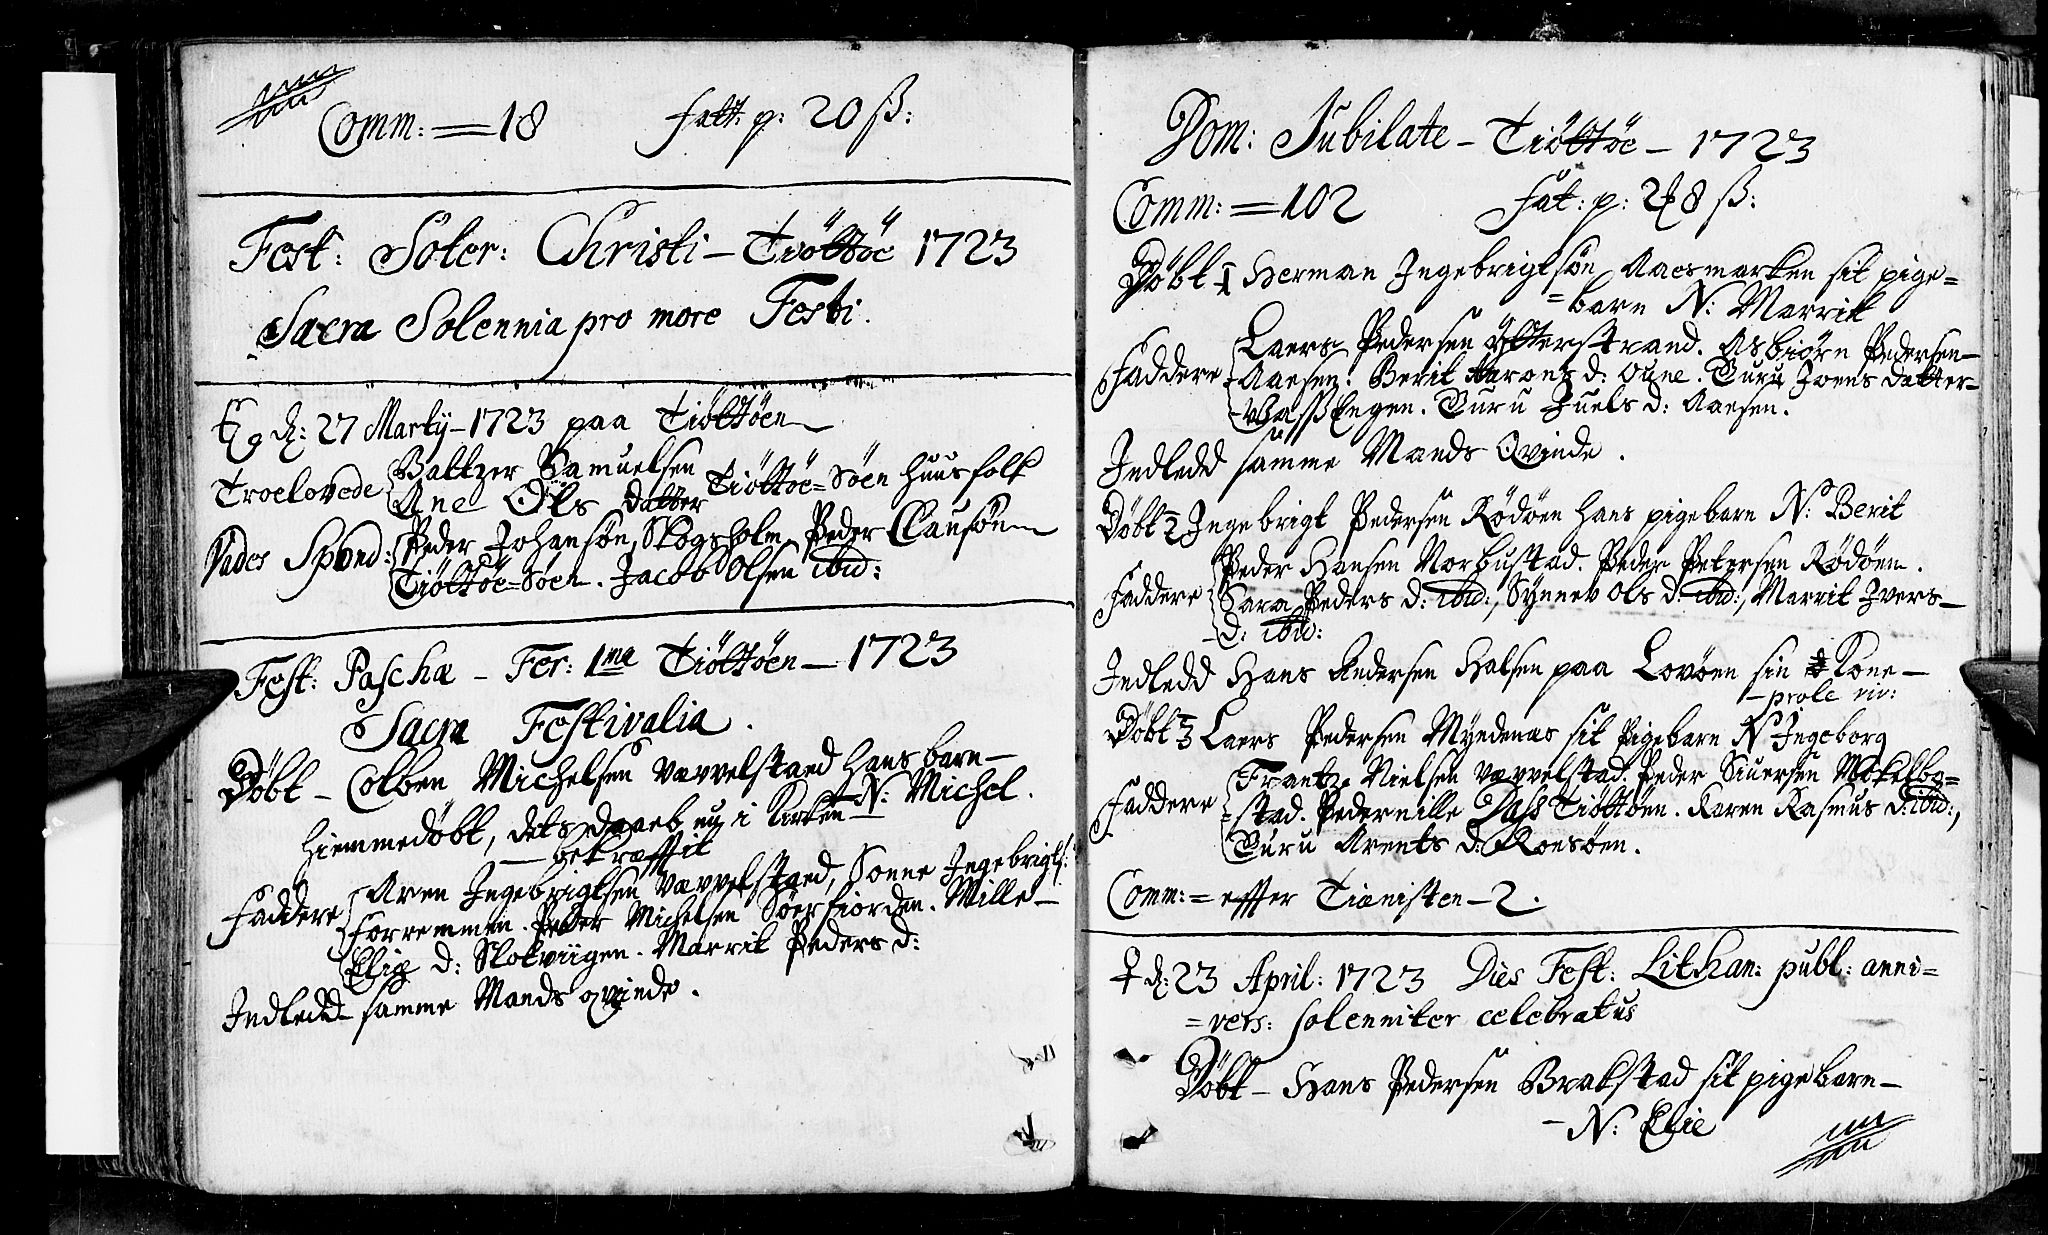 Comm: = 18 fatt: p: 20 ß:
Fest: Soter: Christi – Tiøttøe 1723
Sacra Solennia pro more Festi.
d: 27 Martij – 1723 paa Tiøttøen
Troelovede Baltzer Samuelsen
Ane Ols Datter Tiøttøe=Søen huusfolk
Vades Spond: Peder Johansøn, Skogsholm, Peder Clausøn
Tiøttøe=Søen. Jacob Olsen ibid:
Fest: Pascha – Fer: 1me Tiøttøen – 1723
Sacra Festivalia.
Døbt – Colben Michelsen Vevvelstaed hans barn –
N: Michel.
hiemmedøbt, dets daab nu i Kirken
– bekræfftit
Faddere Aren Ingebrigtsen Vevvelstaed, Sonne Ingebrigts:
Forremmen. Peder Michelsen Søerfiorden. Mille –
Elie d: Stokviigen. Marrit Peders d:
Indledd – samme Mands qvinde.
Dom: Jubilate – Tiøttøe – 1723
Comm: = 102 fat: p: 28 ß:
Døbt 1 Herman Ingebrigtsøn Aaesmarken sit pige=
=barn N: Marrit
Faddere Laers Pedersen Ytterstrand. Asbiørn Pedersen –
Aaesen. Berit Aronts d: Oune. Guru Joens datter –
– Vassengen. Guru Juels d: Aaesen.
Indledd samme Mands Qvinde.
Døbt 2 Ingebrigt Pedersen Rødøen hans pigebarn N: Berit
Faddere Peder Hansen Norbustad. Peder Petersen Rødøen.
Sara Peders d: ibid:, Synnev Ols d: ibid:, Marrit Ivers –
– d: ibid:
Indledd Hans Andersen Halsen paa Lovøen sin Kone –
– prole viv:
Døbt 3 Laers Pedersen Myndenæs sit Pigebarn N Ingeborg
Faddere Frantz Nielsen Vevvelstad. Peder Siuersen Møkelbo=
=stad. Pedernille Dass Tiøttøen. Karen Rasmus d: ibid:,
Guru Arents d: Roesøen.
Comm: = effter Tienisten – 2.
d: 23 April: 1723 Dies Fest: Lithan: publ: anni=
=vers: solenniter celebratus
Døbt – Hans Pedersen Brakstad sit pigebarn –
– N: Elie